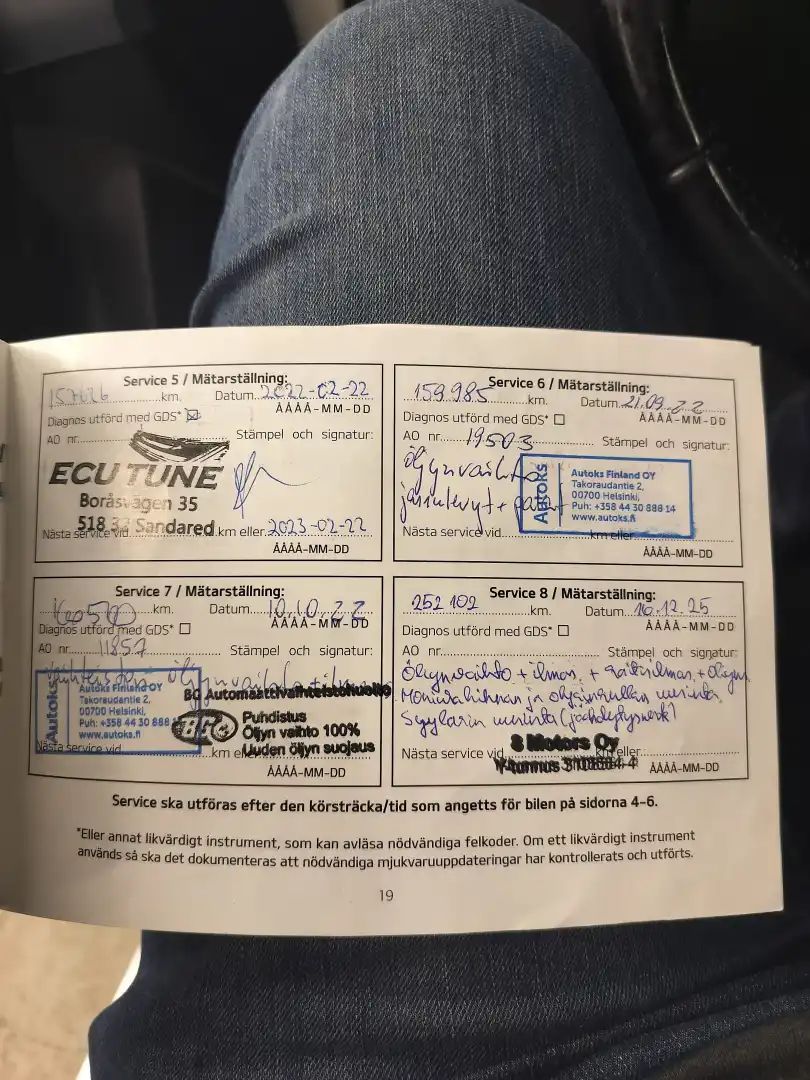 Service 5 / Mätarställning:
km. Datum 2022-02-22
ÅÅÅÅ-MM-DD
Diagnos utförd med GDS* ☒
AO nr. Stämpel och signatur:
ECU TUNE
Boråsvägen 35
518 33 Sandared
Nästa service vid km eller 2023-02-22
ÅÅÅÅ-MM-DD
Service 6 / Mätarställning:
159.985 km. Datum 21.09.22
ÅÅÅÅ-MM-DD
Diagnos utförd med GDS* ☐
AO nr. 19503 Stämpel och signatur:
öljynvaihto
Autoks
Autoks Finland OY
Takoraudantie 2,
00700 Helsinki,
Puh: +358 44 30 888 14
www.autoks.fi
Nästa service vid km eller
ÅÅÅÅ-MM-DD
Service 7 / Mätarställning:
km. Datum 10.10.22
ÅÅÅÅ-MM-DD
Diagnos utförd med GDS* ☐
AO nr. 11857 Stämpel och signatur:
öljynvaihto
Autoks
Autoks Finland OY
Takoraudantie 2,
00700 Helsinki,
Puh: +358 44 30 888
www.autoks.fi
BG Automaattivaihteistohuolto
Puhdistus
Öljyn vaihto 100%
Uuden öljyn suojaus
Nästa service vid km eller
ÅÅÅÅ-MM-DD
Service 8 / Mätarställning:
252 102 km. Datum 16.12.25
ÅÅÅÅ-MM-DD
Diagnos utförd med GDS* ☐
AO nr. Stämpel och signatur:
Öljynvaihto + ilman + raitisilman + öljyn
Moniurahihnan ja uusinta
uusinta (jäähdytysneste)
8 Motors Oy
Nästa service vid km eller
Y-tunnus
ÅÅÅÅ-MM-DD
Service ska utföras efter den körsträcka/tid som angetts för bilen på sidorna 4-6.
*Eller annat likvärdigt instrument, som kan avläsa nödvändiga felkoder. Om ett likvärdigt instrument
används så ska det dokumenteras att nödvändiga mjukvaruuppdateringar har kontrollerats och utförts.
19